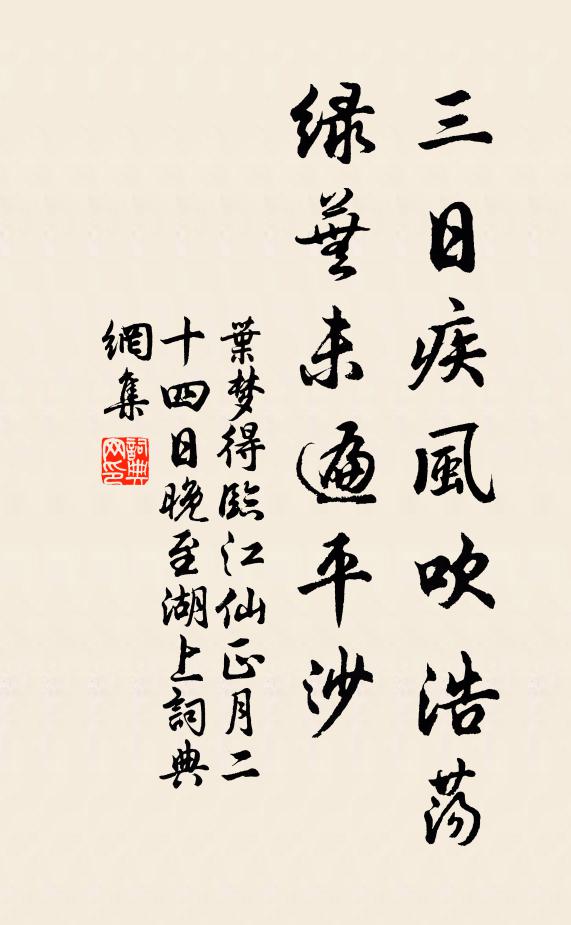 三日疾風吹浩蕩
緑蕪未遍平沙
葉梦得臨江仙正月二
十四日晚至湖上詞典
網集
詞典網印